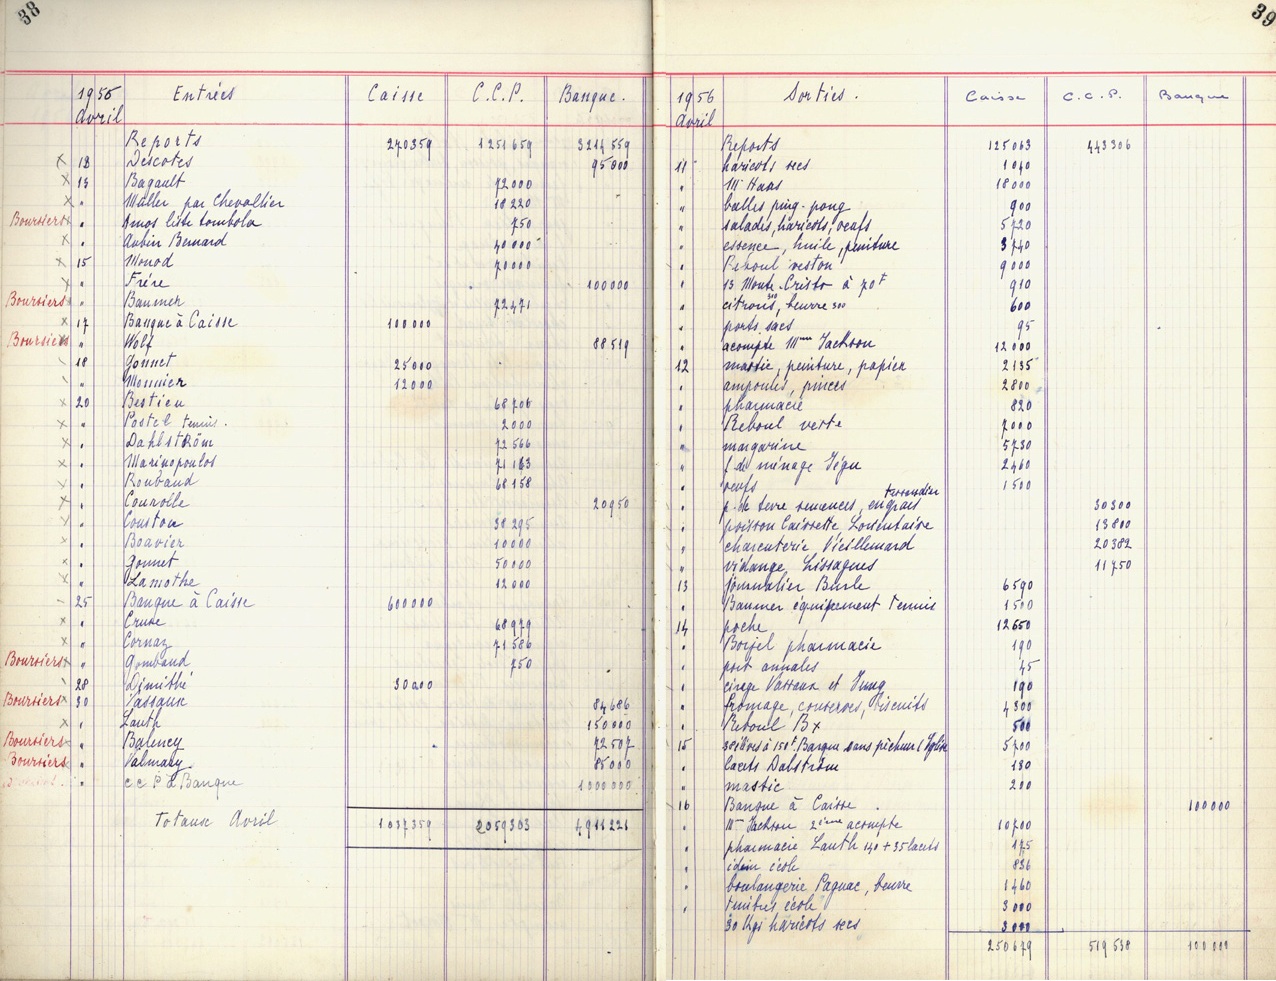 38
1956 Entrées Caisse C.C.P. Banque.
Avril
Reports 270359 1251659 3214559
x 18 Descotes 95000
x 13 Bagault 72000
x " Müller par Chevallier 18220
Boursiers x " Amos liste tombola 750
x " Aubin Bernard 40000
x 15 Monod 70000
x " Frére 100000
Boursiers " Baumer 72471
x 17 Banque à Caisse 100000
Boursiers " Wolf 88519
18 Gonnet 25000
" Monnier 12000
x 20 Bestieu 68706
x " Postel tennis. 2000
x " Dahlström 72566
x " Marinopoulos 71163
x " Roubaud 68158
x " Courolle 20950
x " Couston 38295
x " Boavier 10000
x " Gonnet 50000
x " Lamothe 12000
25 Banque à Caisse 600000
x " Cruse 68979
x " Cornaz 71586
Boursiers x " Gombaud 750
28 Dimithé 30000
Boursiers x 30 Vassaux 84686
x " Lauth 150000
Boursiers " Balency 72507
Boursiers " Valmary 85000
" c c P à Banque 1000000
Totaux Avril 1037359 2059303 4911221
39
1956 Sorties. Caisse C.C.P. Banque
Avril
Reports 125063 443306
11 haricots secs 1040
" Mr Haas 18000
" balles ping-pong 900
" salades, haricots, oeufs 5720
" essence, huile, peinture 3740
" Reboul veston 9000
" 13 Monte Cristo à 70f 910
" citrons 300, beurre 300 600
" ports sacs 95
" acompte Mme Jackson 12000
12 mastic, peinture, papier 2135
" ampoules, pinces 2800
" pharmacie 820
" Reboul verte 7000
" margarine 5730
" f. de ménage Jégu 2460
" oeufs 1500
" p. de terre semences, engrais 30300
" poisson Caissette 13800
" charcuterie Vieillemard 20382
" vidange Lissagues 11750
13 journalier Burle 6590
" Baumer équipement tennis 1500
14 poche 12650
" pharmacie 190
" port annales 45
" cirage Vassaux et Jung 190
" fromage, conserves, biscuits 4300
" Reboul Bx 500
15 à 150f Barque sans pêcheur (Eglise 5700
" lacets Dalström 130
" mastic 200
16 Banque à Caisse. 100000
" Mme Jackson 2ième acompte 10700
" pharmacie Lauth 140 + 35 lacets 175
" idem école 836
" boulangerie Pagnac, beurre 1460
" timbres école 3000
30 Kgs haricots secs 3000
250679 519538 100000